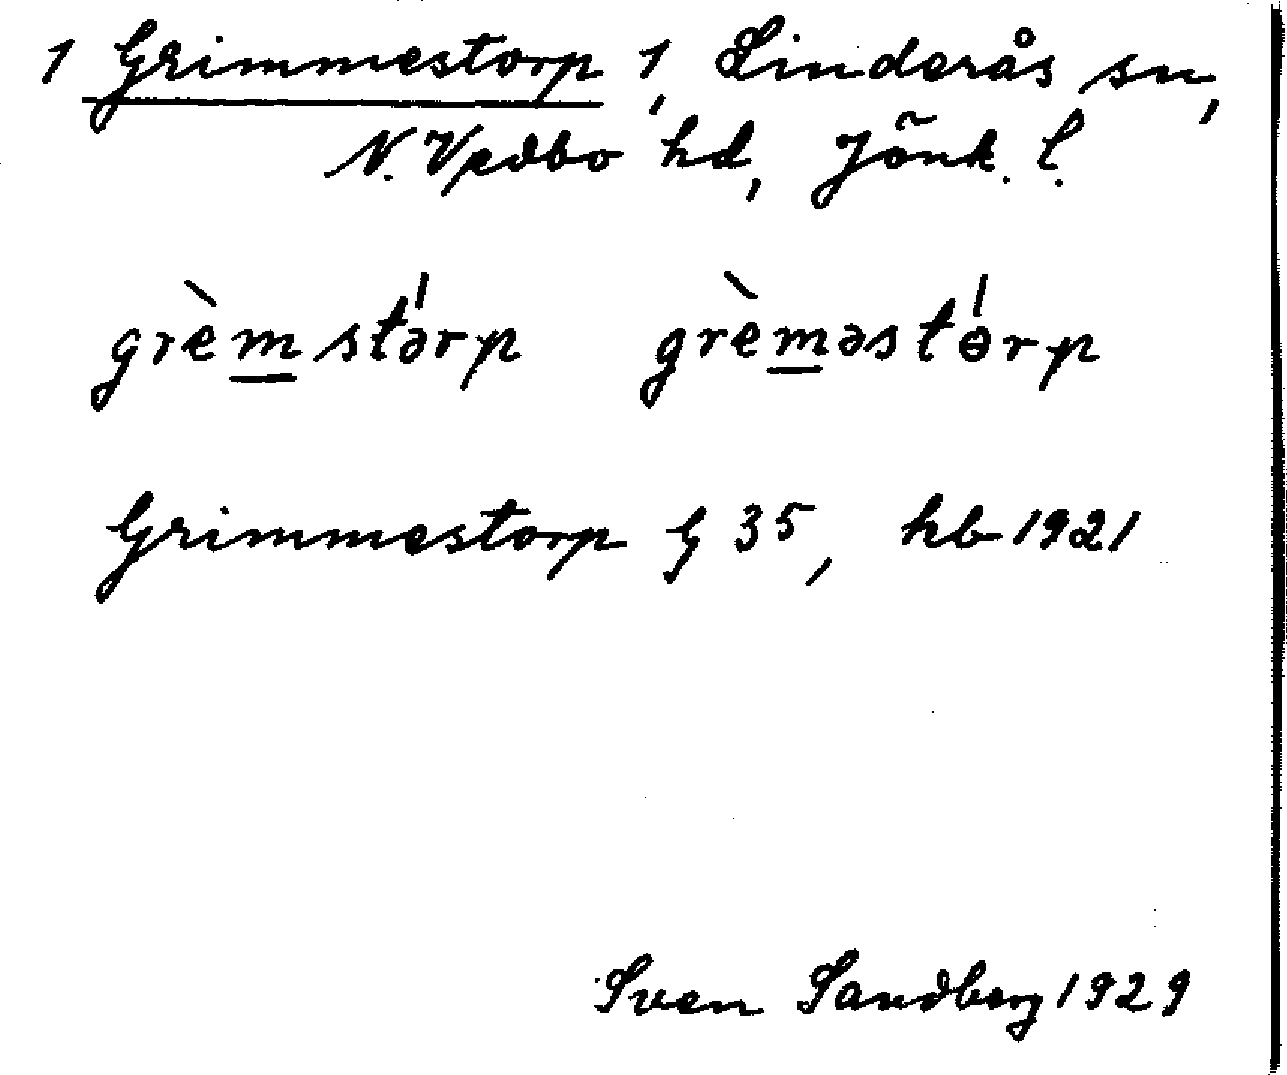 1 Grimmestorp 1, Linderås sn,
N. Vedbo hd, Jönk. l.
grèmstə́rp grèməstɵ́rp
Grimmestorp § 35, hb 1921
Sven Sandberg 1929